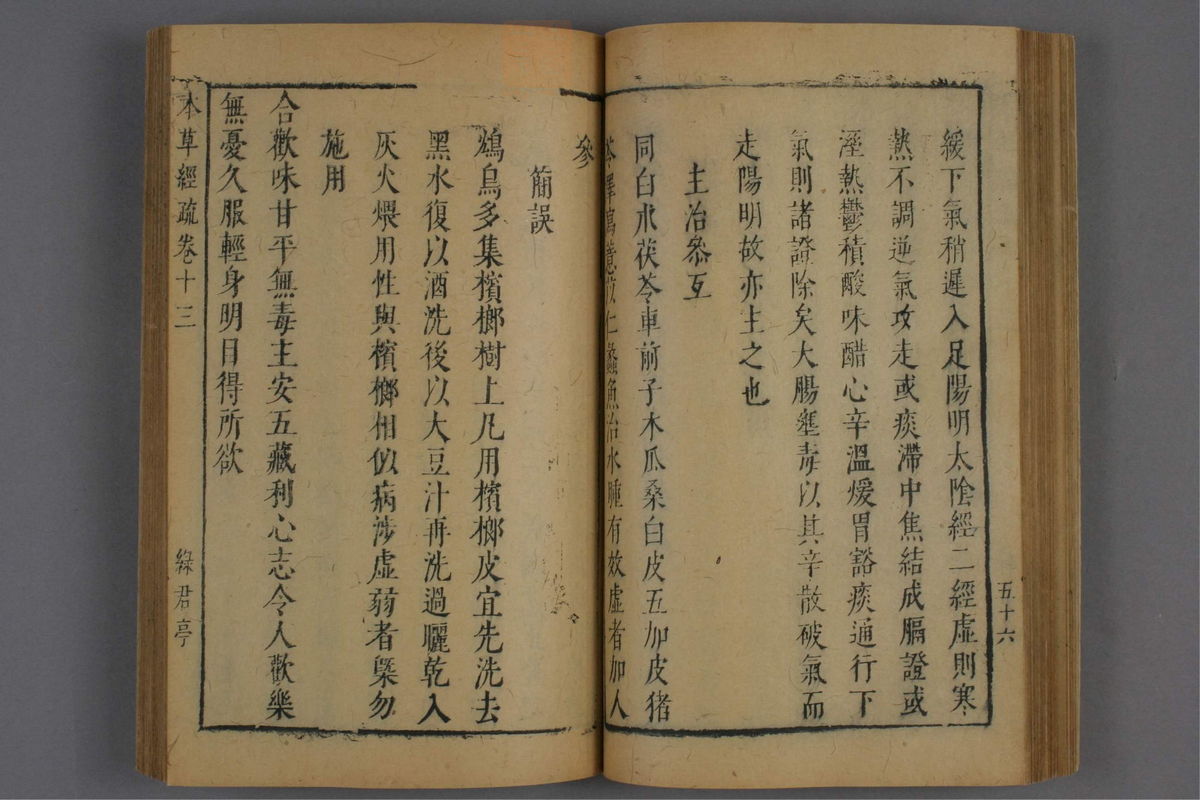 緩下氣稍遲入足陽明太陰經二經虛則寒
熱不調逆氣攻走或痰滯中焦結成膈證或
溼熱鬱積酸味醋心辛溫煖胃豁痰通行下
氣則諸證除矣大腸壅毒以其辛散破氣而
走陽明故亦主之也
主治參互
同白朮茯苓車前子木瓜桑白皮五加皮猪
苓澤瀉薏苡仁蠡魚治水腫有效虛者加人
參
簡誤
鴆鳥多集檳榔樹上凡用檳榔皮宜先洗去
黑水復以酒洗後以大豆汁再洗過曬乾入
灰火煨用性與檳榔相似病涉虛弱者槩勿
施用
合歡味甘平無毒主安五藏利心志令人歡樂
無憂久服輕身明目得所欲
五十六
本草經疏卷十三
綠君亭